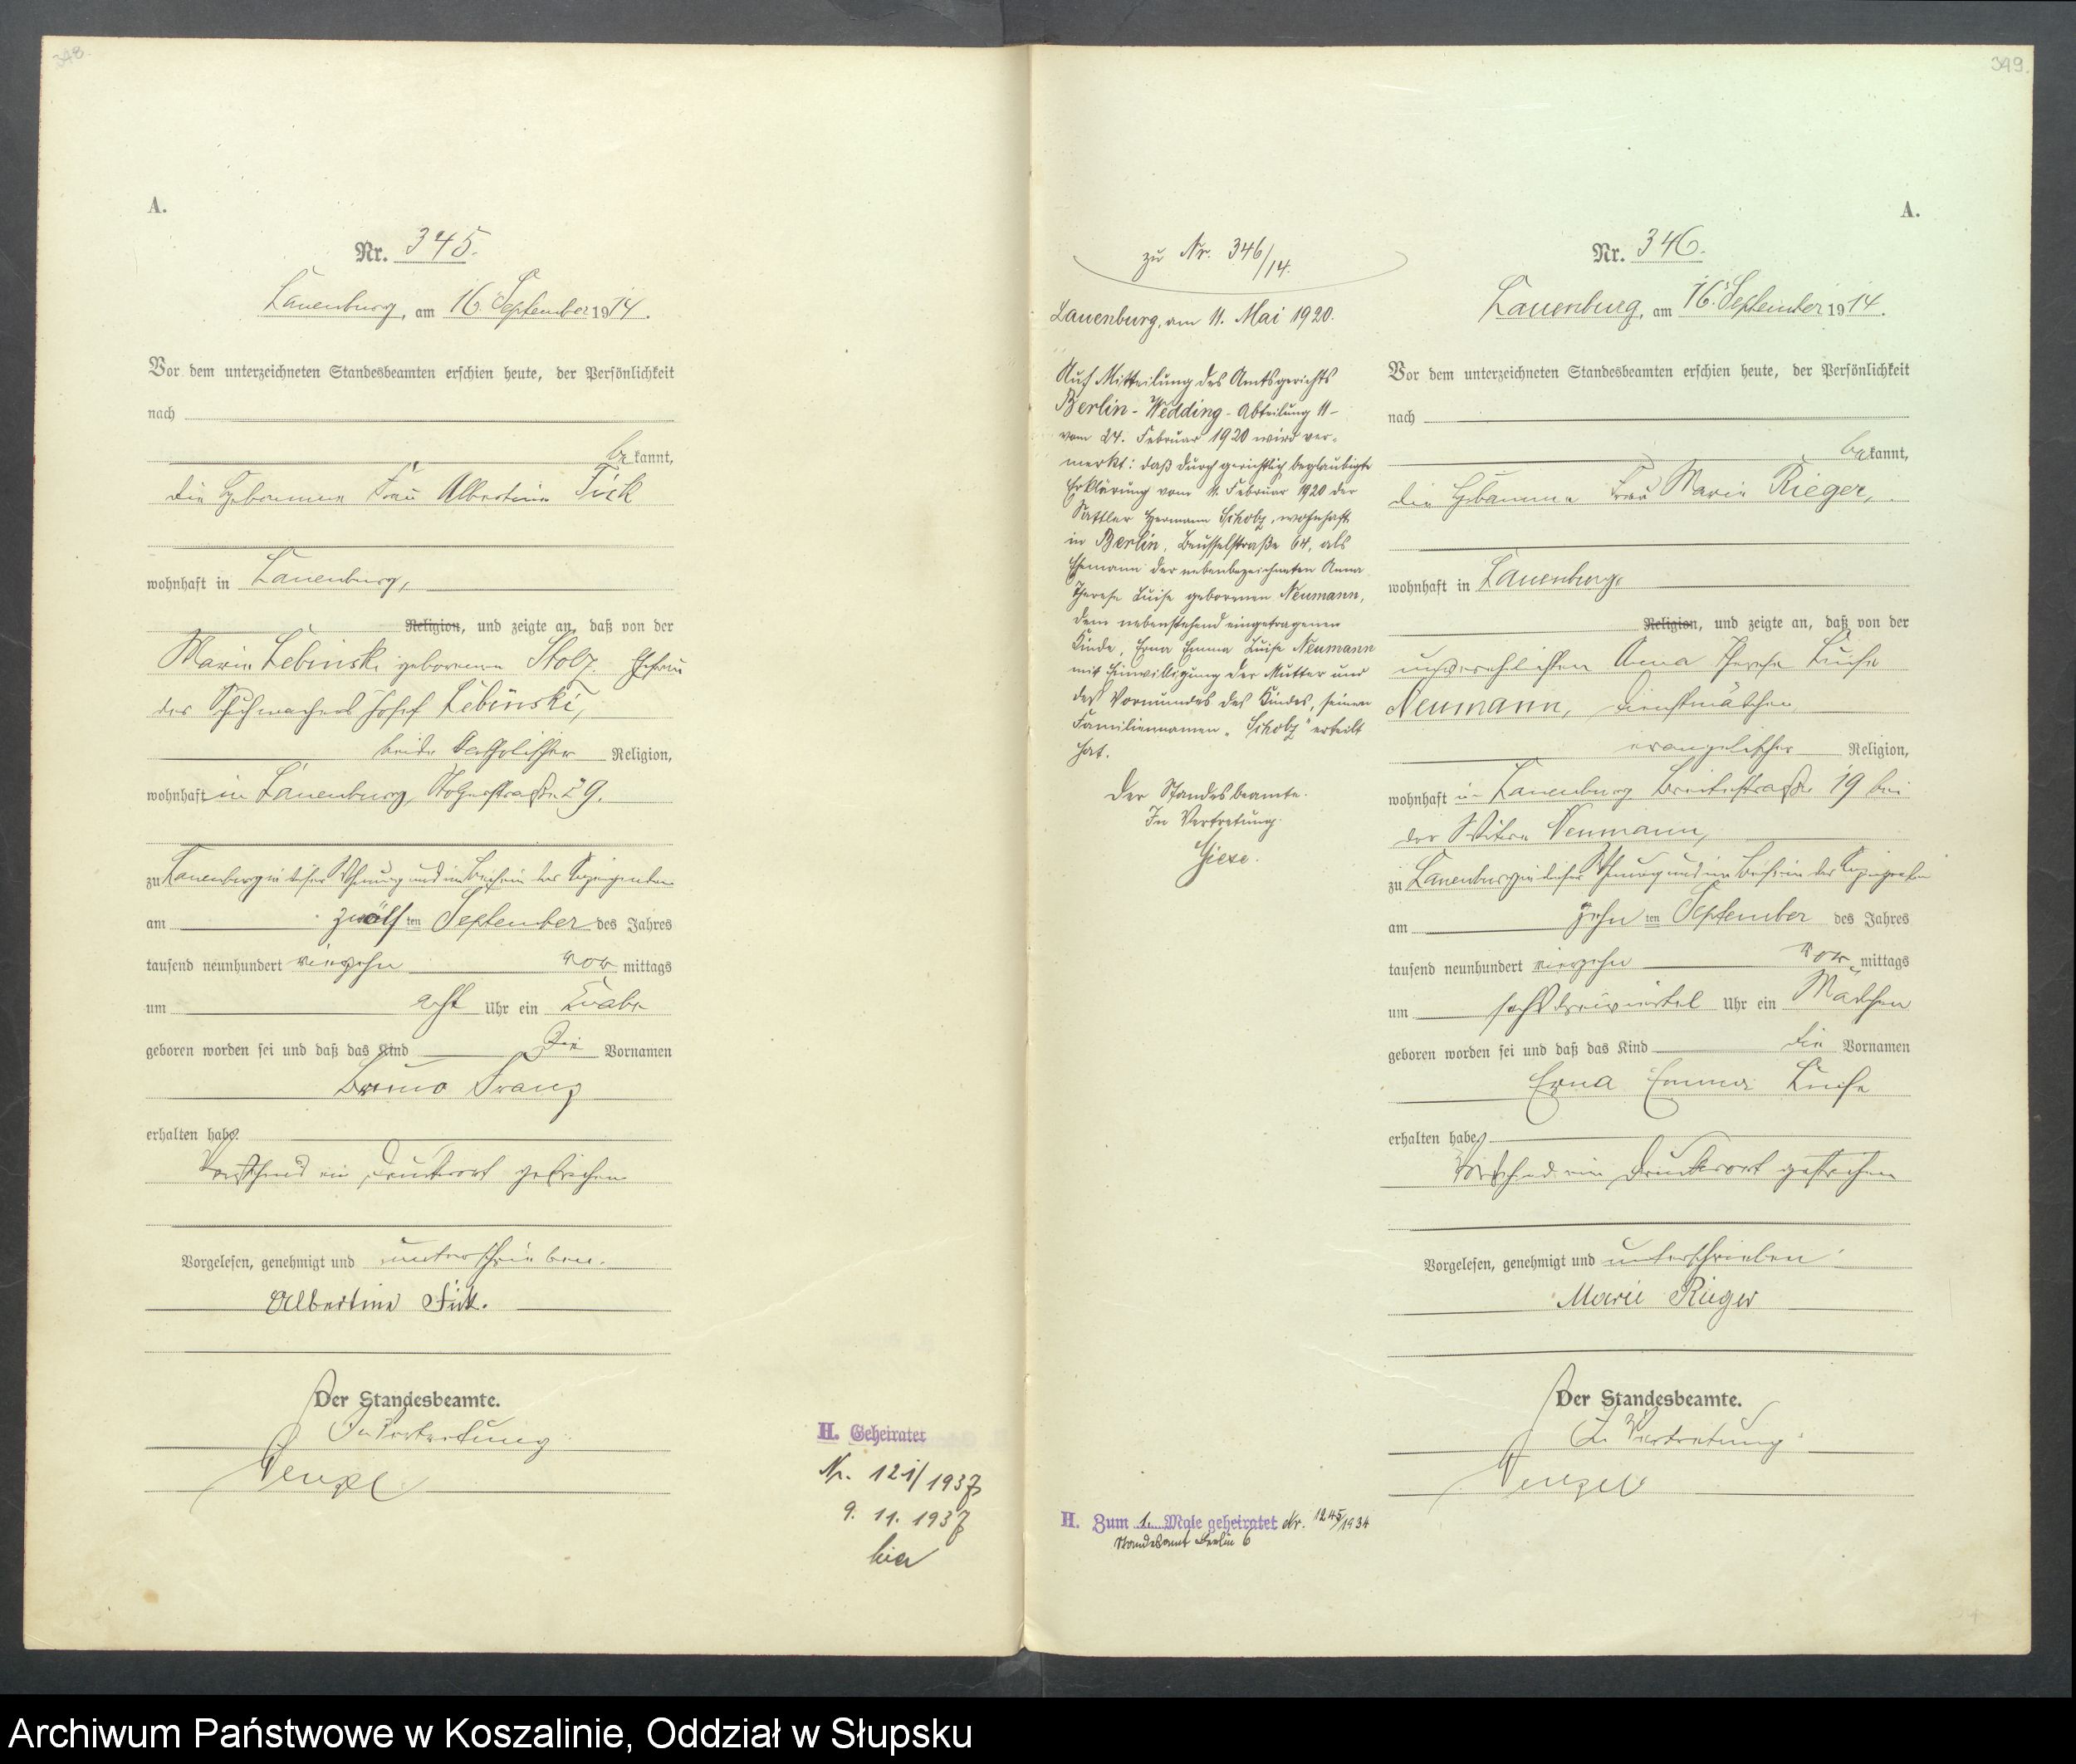 348.
A.
Nr. 345.
Lauenburg, am 16. September 1914.
Vor dem unterzeichneten Standesbeamten erschien heute, der Persönlichkeit
nach
bekannt,
die Hebamme Frau Albertine Fick
wohnhaft in Lauenburg,
Religion, und zeigte an, daß von der
Marie Lebinski geborenen Stolz, Ehefrau
des Schuhmachers Josef Lebinski,
beide katholischer Religion,
wohnhaft in Lauenburg, 29.
zu Lauenburg in dieser Wohnung und im Beisein der Anzeigenden
am zwölften September des Jahres
tausend neunhundert vierzehn vormittags
um acht Uhr ein Knabe
geboren worden sei und daß das Kind die Vornamen
Bruno Franz
erhalten habe.
Vorstehend ein Druckwort gestrichen
Vorgelesen, genehmigt und unterschrieben.
Albertine Fick.
Der Standesbeamte.
In Vertretung
Wenzel
H. Geheiratet
Nr. 121/1937
9. 11. 1937
hier
349.
zu Nr. 346/14.
Lauenburg, am 11. Mai 1920.
Auf Mitteilung des Amtsgerichts
Berlin-Wedding - Abteilung 11 -
vom 24. Februar 1920 wird ver-
merkt: daß durch gerichtlich beglaubigte
Erklärung vom Februar 1920 der
Sattler Hermann Scholz, wohnhaft
in Berlin, Beusselstraße 64, als
Ehemann der nebenbezeichneten Anna
Therese Luise geborenen Neumann,
dem nebenstehend eingetragenen
Kinde, Erna Emma Luise Neumann
mit Einwilligung der Mutter und
des Vormundes des Kindes, seinen
Familiennamen „Scholz“ erteilt
hat.
Der Standesbeamte.
In Vertretung.
Giese.
H. Zum 1. Male geheiratet Nr. 1245/1934
Standesamt Berlin 6
A.
Nr. 346.
Lauenburg, am 16. September 1914.
Vor dem unterzeichneten Standesbeamten erschien heute, der Persönlichkeit
nach
bekannt,
die Hebamme Frau Marie Rieger,
wohnhaft in Lauenburg,
Religion, und zeigte an, daß von der
unverehelichten Anna Therese Luise
Neumann, Dienstmädchen,
evangelischer Religion,
wohnhaft in Lauenburg Breitestraße 19 bei
der Witwe Neumann,
zu Lauenburg in dieser Wohnung und im Beisein der Anzeigenden
am zehnten September des Jahres
tausend neunhundert vierzehn vormittags
um sechs dreiviertel Uhr ein Mädchen
geboren worden sei und daß das Kind die Vornamen
Erna Emma Luise
erhalten habe.
Vorstehend ein Druckwort gestrichen
Vorgelesen, genehmigt und unterschrieben.
Marie Rieger
Der Standesbeamte.
In Vertretung.
Wenzel
Archiwum Państwowe w Koszalinie, Oddział w Słupsku